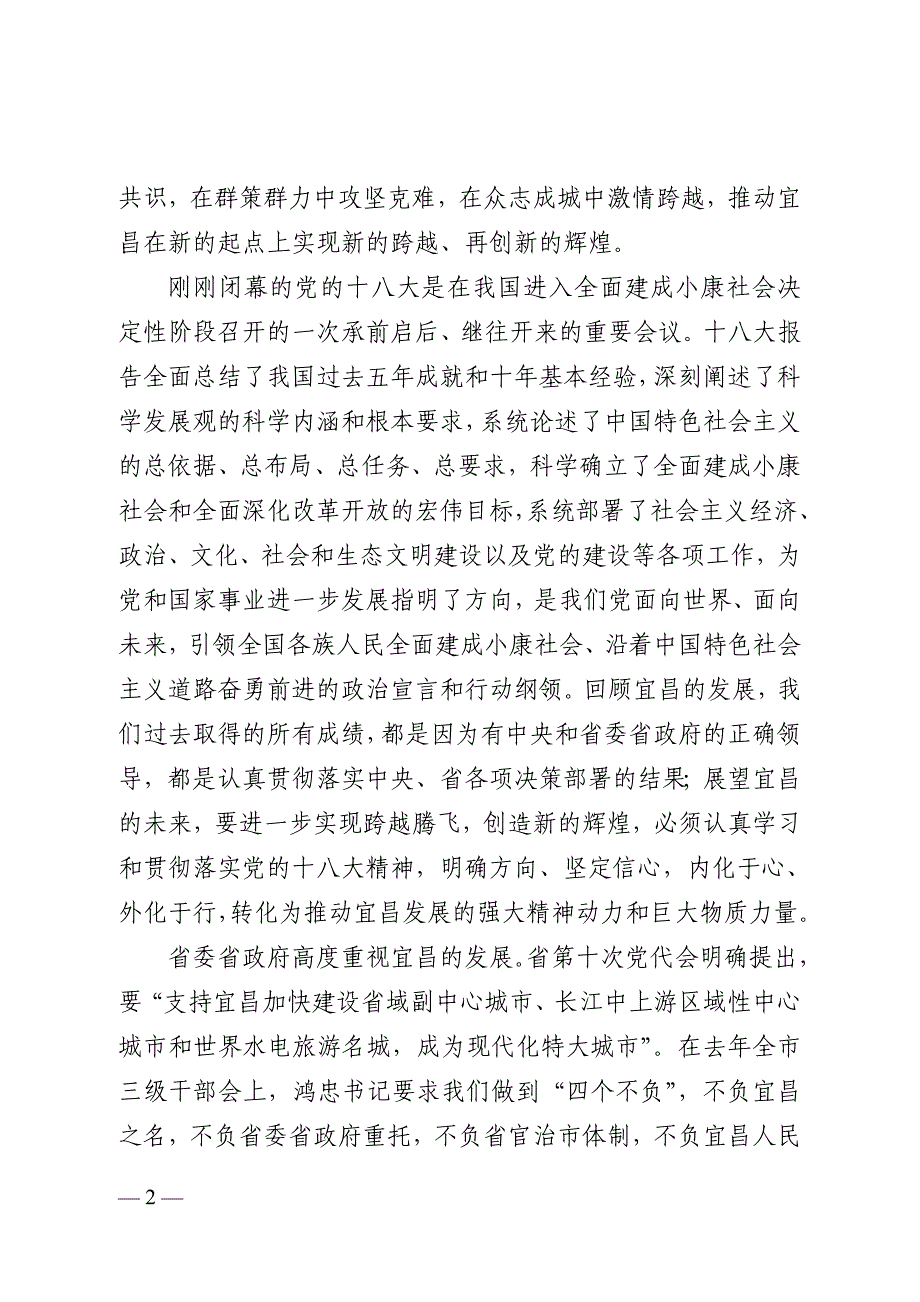 共识，在群策群力中攻坚克难，在众志成城中激情跨越，推动宜
昌在新的起点上实现新的跨越、再创新的辉煌。
刚刚闭幕的党的十八大是在我国进入全面建成小康社会决
定性阶段召开的一次承前启后、继往开来的重要会议。十八大报
告全面总结了我国过去五年成就和十年基本经验，深刻阐述了科
学发展观的科学内涵和根本要求，系统论述了中国特色社会主义
的总依据、总布局、总任务、总要求，科学确立了全面建成小康
社会和全面深化改革开放的宏伟目标，系统部署了社会主义经济、
政治、文化、社会和生态文明建设以及党的建设等各项工作，为
党和国家事业进一步发展指明了方向，是我们党面向世界、面向
未来，引领全国各族人民全面建成小康社会、沿着中国特色社会
主义道路奋勇前进的政治宣言和行动纲领。回顾宜昌的发展，我
们过去取得的所有成绩，都是因为有中央和省委省政府的正确领
导，都是认真贯彻落实中央、省各项决策部署的结果；展望宜昌
的未来，要进一步实现跨越腾飞，创造新的辉煌，必须认真学习
和贯彻落实党的十八大精神，明确方向、坚定信心，内化于心、
外化于行，转化为推动宜昌发展的强大精神动力和巨大物质力量。
省委省政府高度重视宜昌的发展。省第十次党代会明确提出，
要“支持宜昌加快建设省域副中心城市、长江中上游区域性中心
城市和世界水电旅游名城，成为现代化特大城市”。在去年全市
三级干部会上，鸿忠书记要求我们做到“四个不负”，不负宜昌
之名，不负省委省政府重托，不负省官治市体制，不负宜昌人民
— 2 —